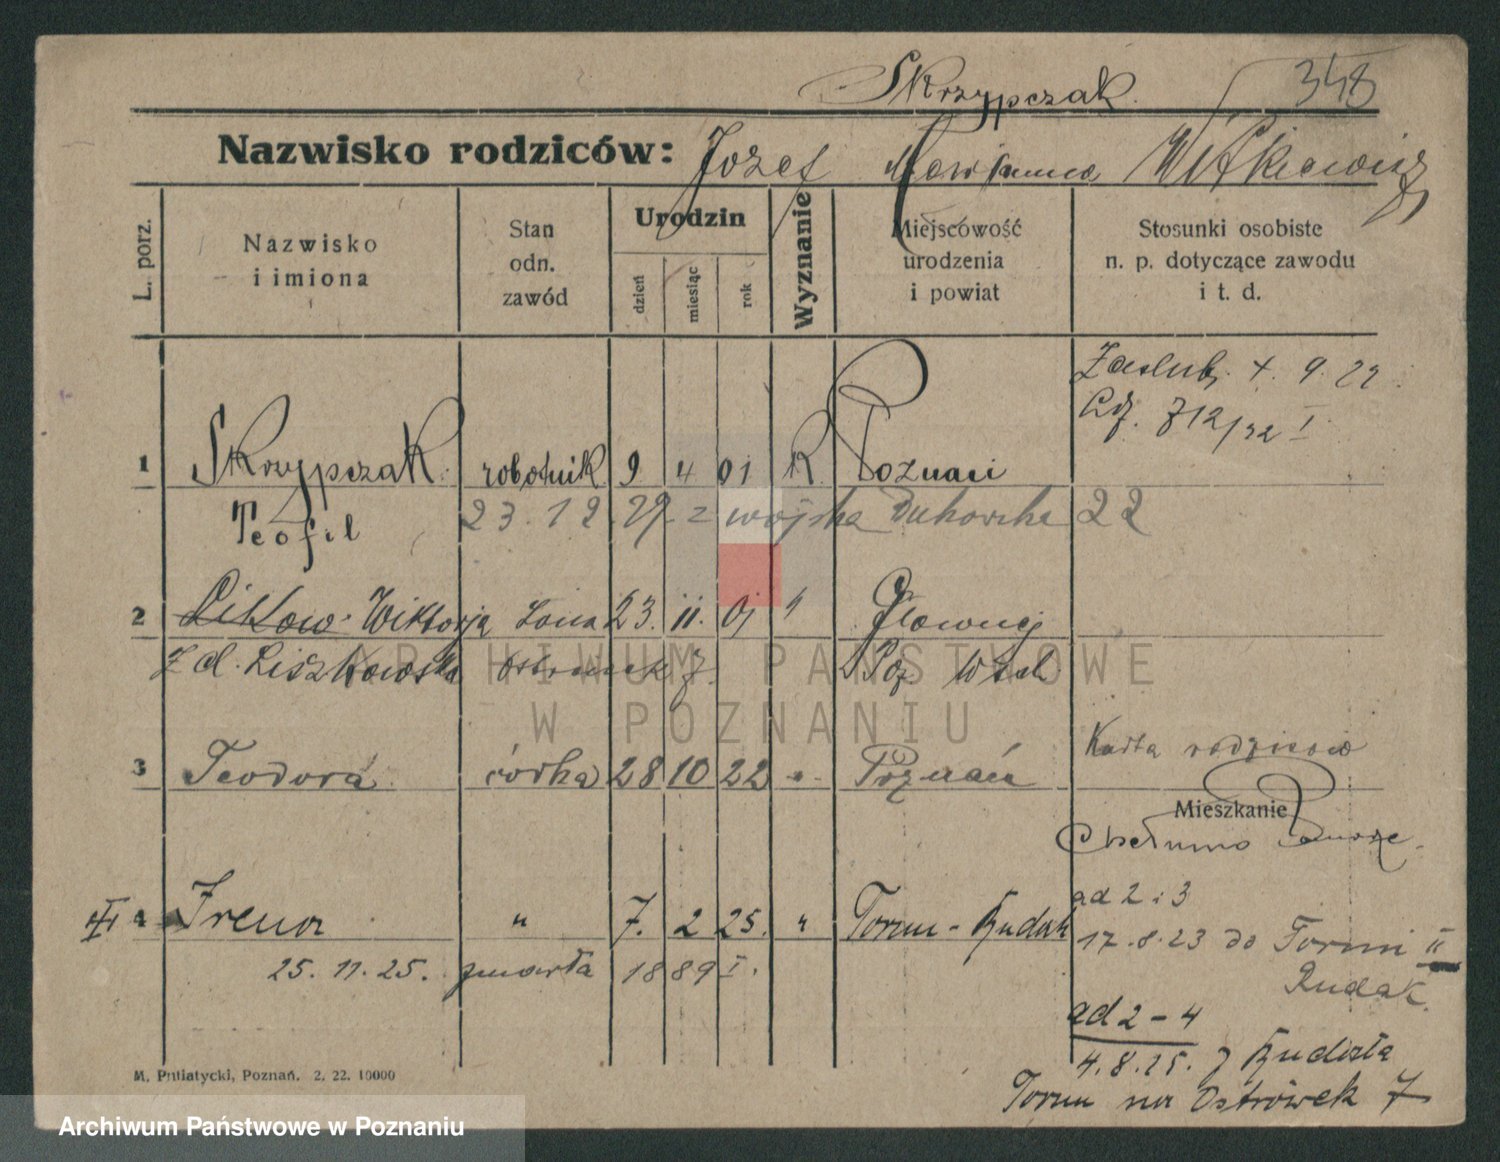 Skrzypczak 348
Nazwisko rodziców: Józef Marianna Witkiewicz
L. porz.
Nazwisko i imiona
Stan odn. zawód
Urodzin
dzień
miesiąc
rok
Wyznanie
Miejscowość urodzenia i powiat
Stosunki osobiste n. p. dotyczące zawodu i t. d.
Zaślub. 4. 9. 22
712/22 I
1 Skrzypczak robotnik 9 4 01 R Poznań
Teofil 23. 12. 22 z wojska 22
2 Wiktorja żona 23. 11. 01 " Główniej
z d. Liszkowska Poz Wsch
3 Teodora córka 28 10 22 " Poznań
Karta rodziców
Mieszkanie
Chełmno Pomorze
III 4 Irena " 7. 2 25. " Toruń - Rudak
25. 11. 25. zmarła 1889 I.
ad 2 i 3
17. 8. 23 do Toruń II
Rudak
ad 2 - 4
4. 8. 25. z
Toruń na Ostrówek 7
M. Putiatycki, Poznań. 2. 22. 10000
ARCHIWUM PAŃSTWOWE
W POZNANIU
Archiwum Państwowe w Poznaniu